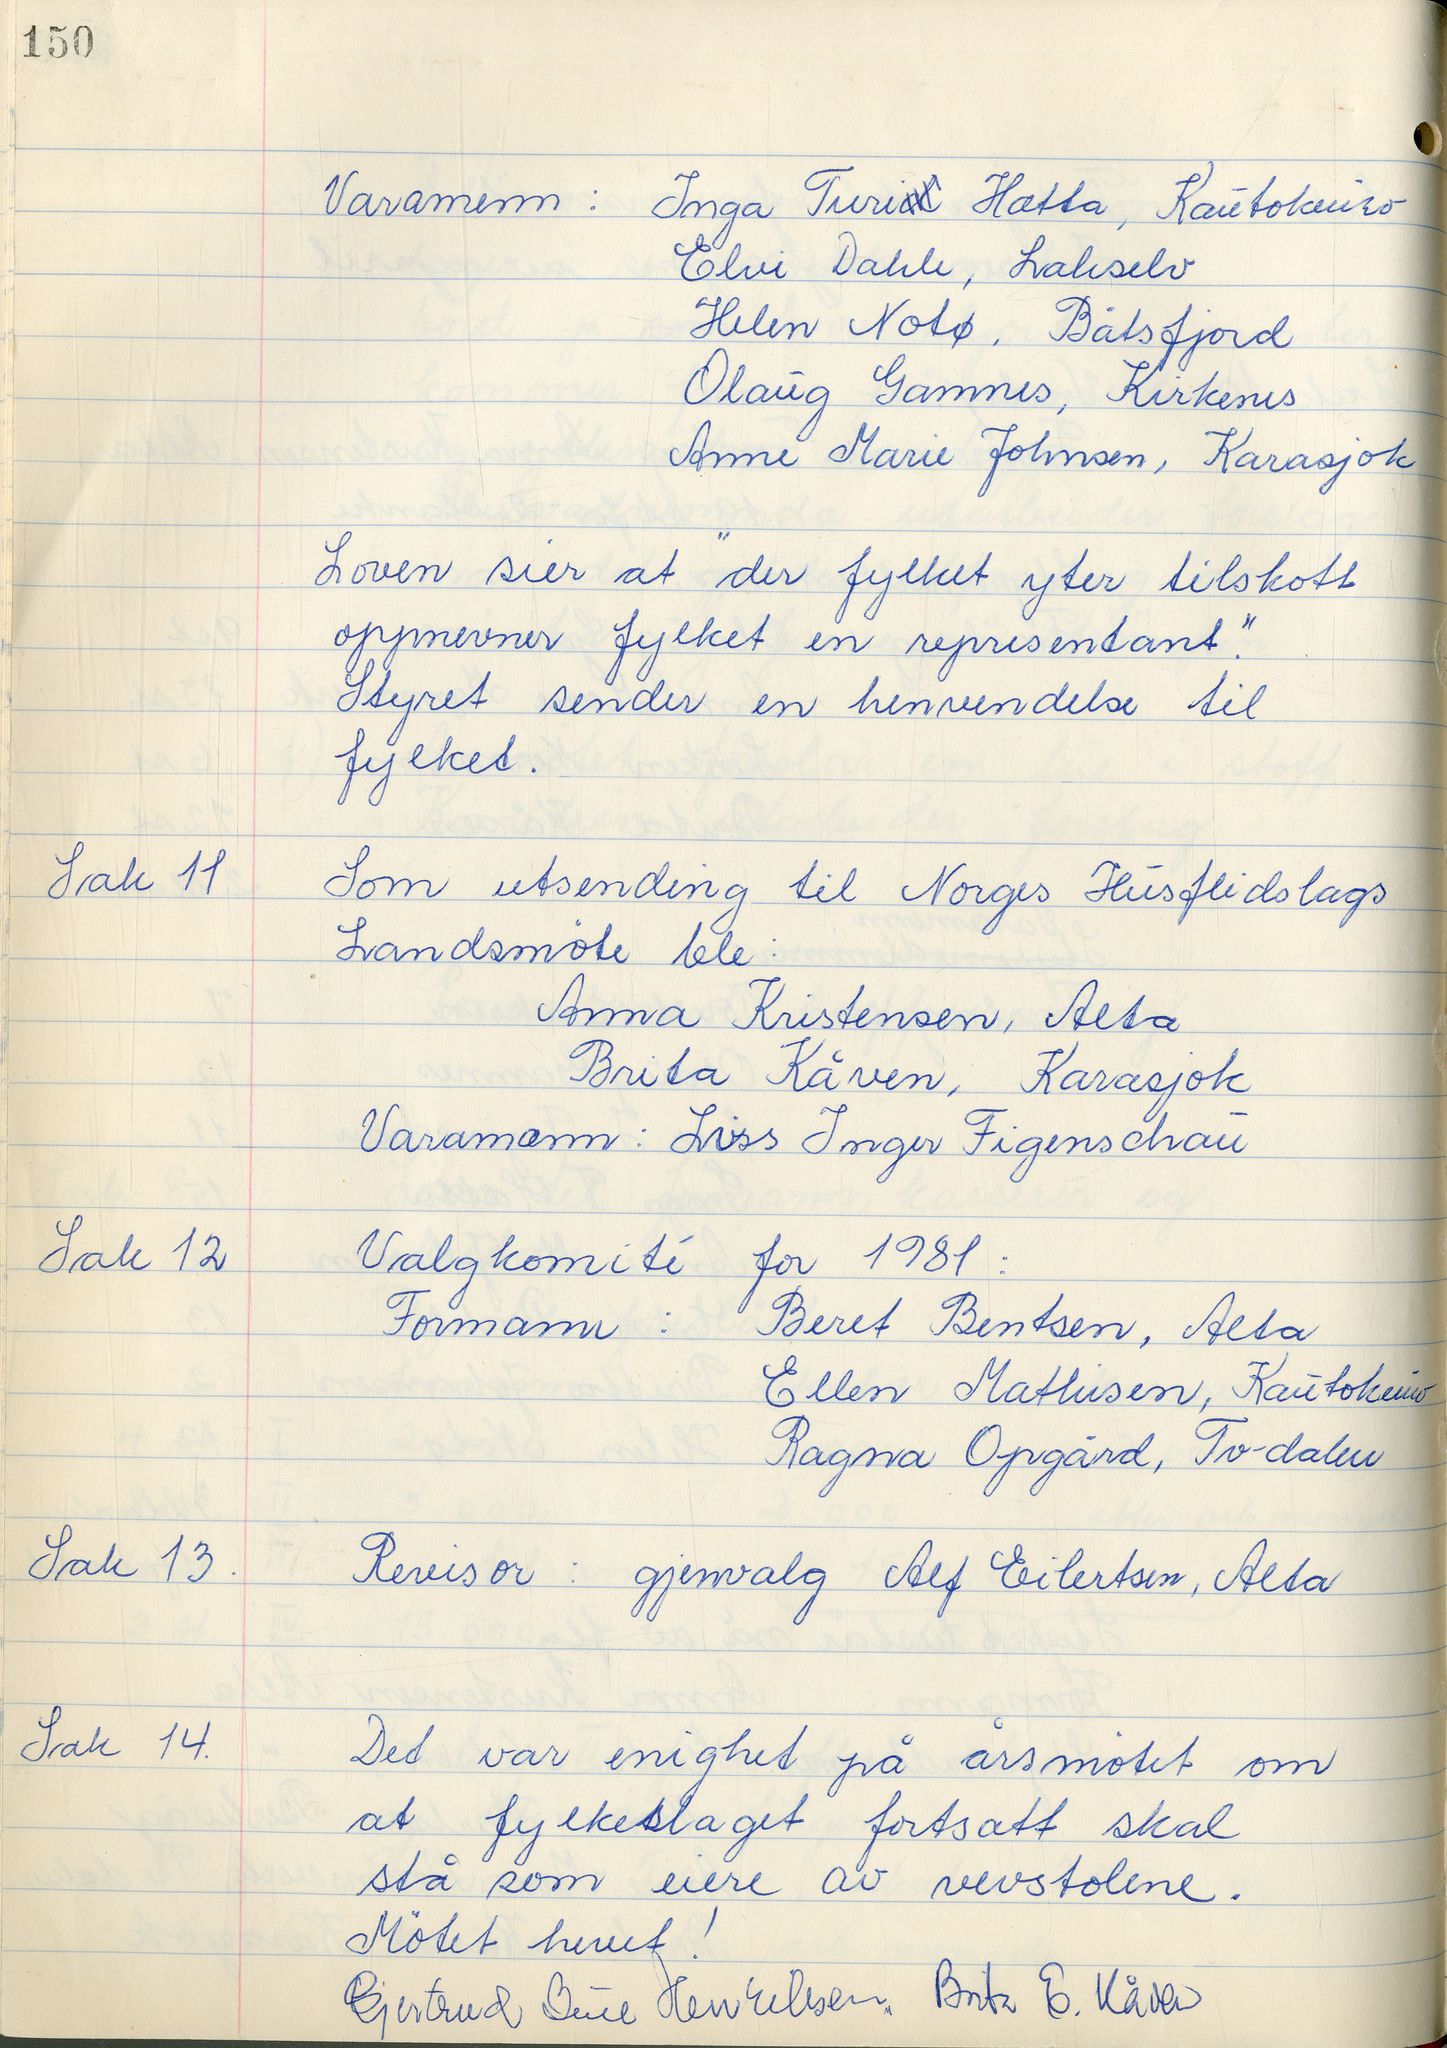 150
Varamenn : Inga Turi Hætta, Kautokeino
Elvi Dahle, Lakselv
Helen Notø, Båtsfjord
Olaug Gamnes, Kirkenes
Anne Marie Johnsen, Karasjok
Loven sier at "der fylket yter tilskott
oppnevner fylket en representant".
Styret sender en henvendelse til
fylket.
Sak 11 Som utsending til Norges Husflidslags
Landsmöte ble :
Anna Kristensen, Alta
Brita Kåven, Karasjok
Varamann : Liss Inger Figenschau
Sak 12 Valgkomité for 1981 :
Formann : Beret Bentsen, Alta
Ellen Mathisen, Kautokeino
Ragna Opgård, Tv-dalen
Sak 13. Revisor : gjenvalg Alf Eilertsen, Alta
Sak 14. Det var enighet på årsmötet om
at fylkeslaget fortsatt skal
stå som eiere av vevstolene.
Mötet hevet !
Gjertrud Henriksen. Brita E. Kåven